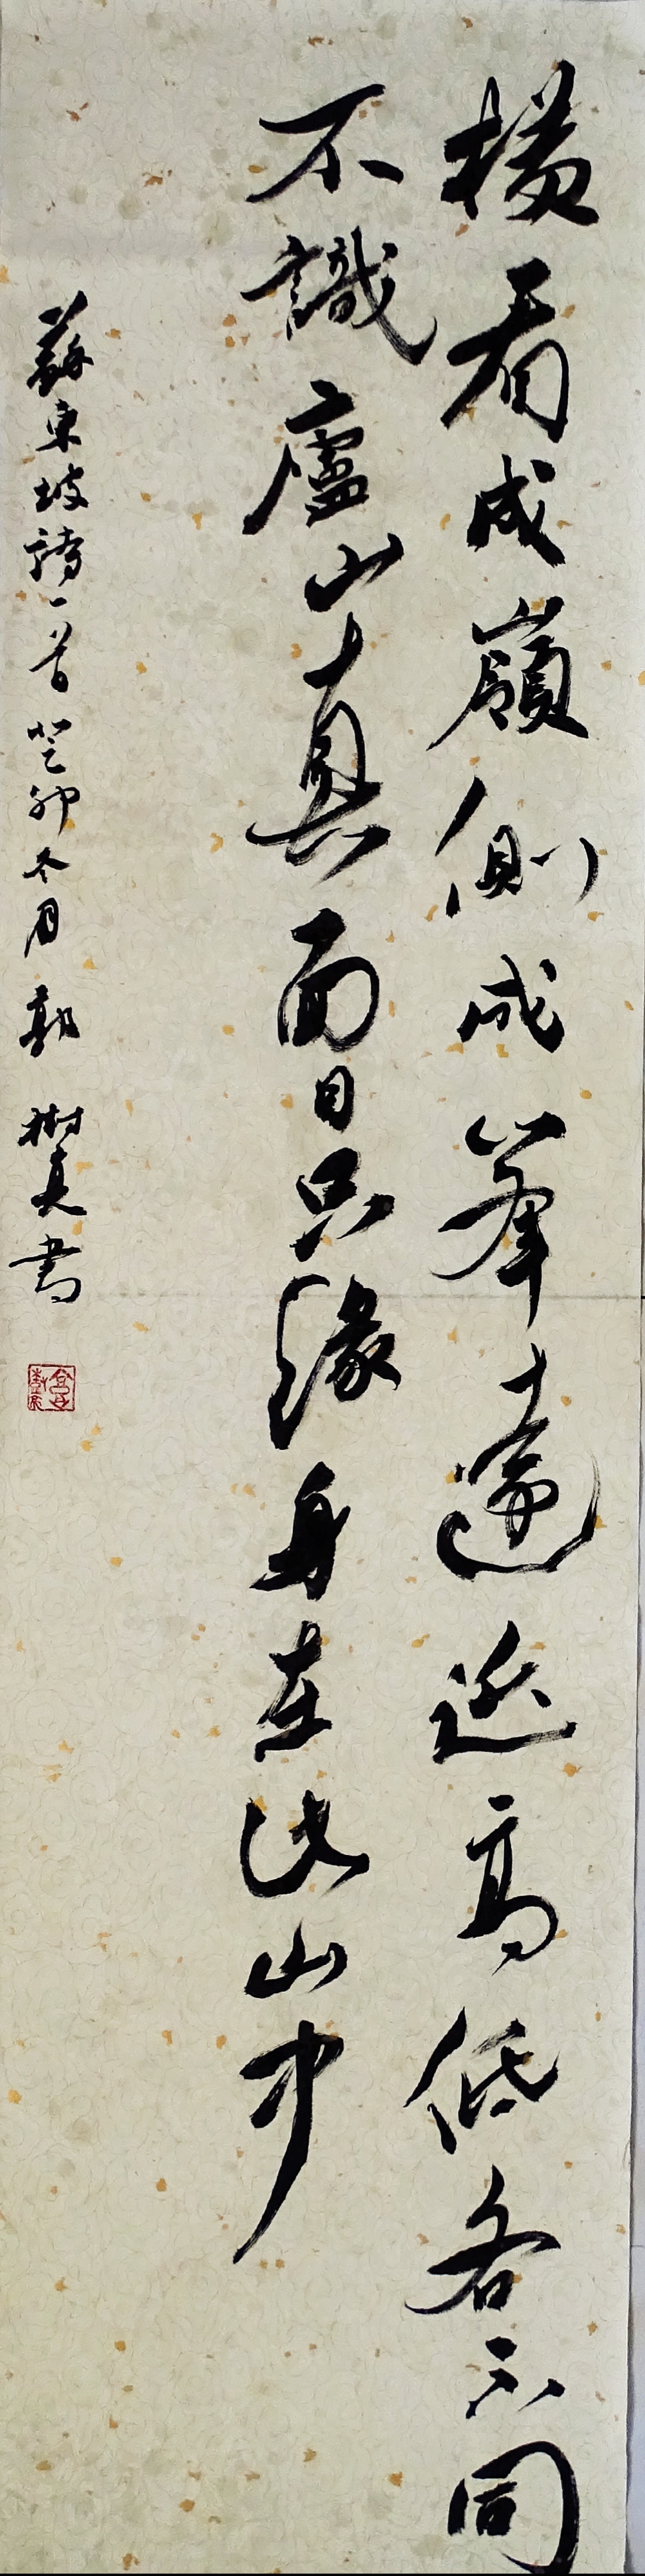 橫看成嶺側成峯遠近高低各不同
不識廬山真面目只緣身在此山中
蘇東坡詩一首癸卯冬月郭樹真書